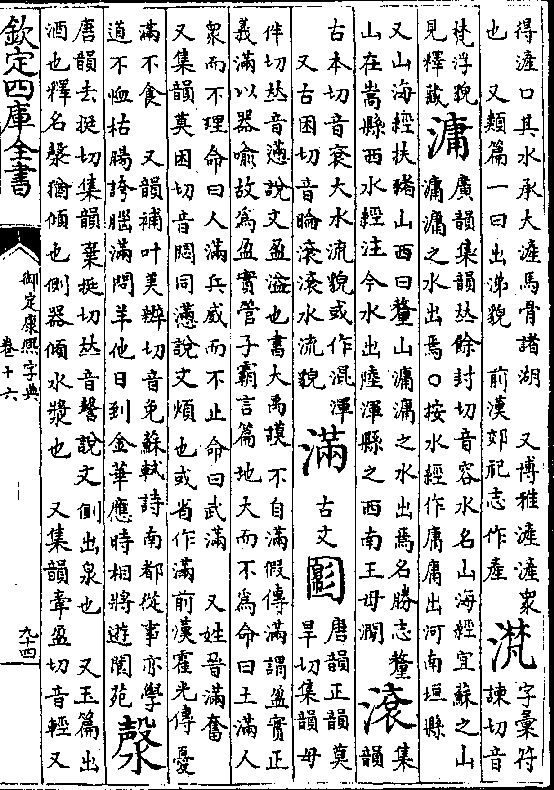 得滻口其水承大滻馬骨諸湖 又博雅滻滻衆
也 又類篇一曰出涕貌 前漢郊祀志作產
滼 字彙符
諫切音
梵浮貌
見釋藏
滽 廣韻集韻𠀤餘封切音容水名山海經宜蘇之山
滽滽之水出焉○按水經作庸庸出河南垣縣
又山海經扶豬山西曰釐山滽滽之水出焉名勝志釐
山在嵩縣西水經注今水出陸渾縣之西南王母澗
滾 集
韻
古本切音袞大水流貌或作混渾
又古困切音睔滾滾水流貌
滿 古文
唐韻正韻莫
旱切集韻母
伴切𠀤音懣說文盈溢也書大禹謨不自滿假傳滿謂盈實正
義滿以器喻故為盈實管子霸言篇地大而不為命曰土滿人
衆而不理命曰人滿兵威而不止命曰武滿 又姓晉滿奮
又集韻莫困切音悶同懣說文煩也或省作滿前漢霍光傳憂
滿不食 又韻補叶美辨切音免蘇軾詩南都從事亦學
道不恤枯腸誇腦滿問羊他日到金華應時相將遊閬苑
漀
唐韻去挺切集韻棄挺切𠀤音謦說文側出泉也 又玉篇出
酒也釋名漀猶傾也側器傾水漿也 又集韻牽盈切音輕又
欽定四庫全書
御定康熙字典
卷十六
九四